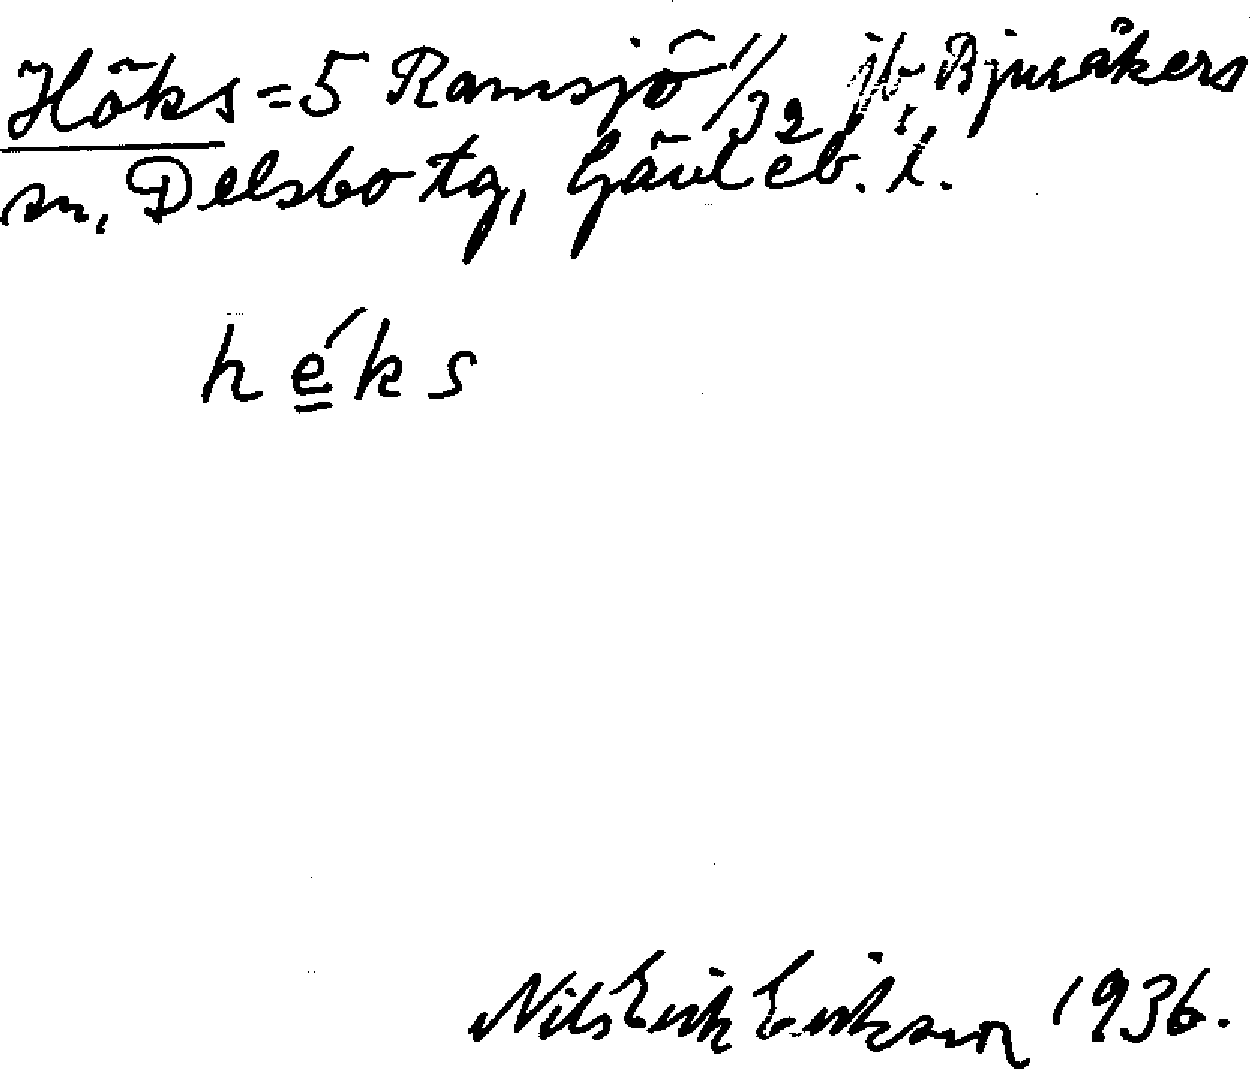 Höks = 5 Ramsjö 1/32 jb, Bjuråkers
sn, Delsbo tg, Gävleb. l.
héks
Nils Erik Erikson 1936.